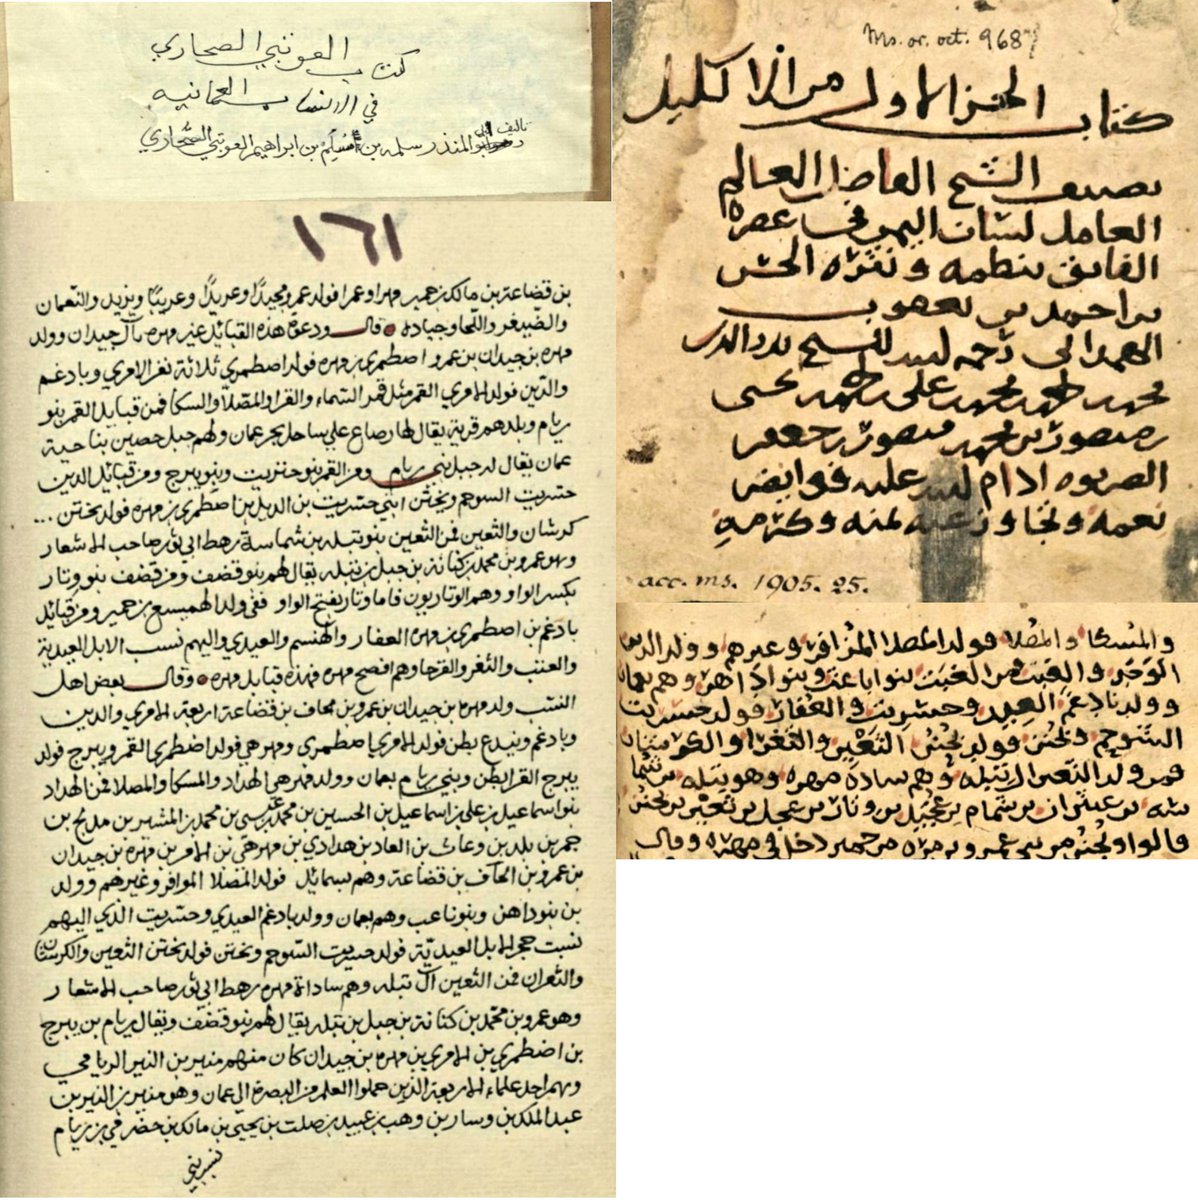 كتاب العوتبي الصحاري
في الانساب العمانيه
تاليف ابوالمنذر سلمه بن مُسْلِمْ بن ابراهيم العوتبي الصحاري
١٦١
بن قضاعة بن مالك بن حمير مهرا وعمرا فولد عمرو مجيدًا وعريدًا وعريبًا ويزيد والنعمان
والضيدغر واللحا وجيادة قال ودعوة هذه القبائل غير مهره مآل حيدان وولد
مهره بن حيدان بن عمرو اصطمري بن مهره فولد اصطمري ثلاثة نفر الامري وبادغم
والدّين فولد الامري القمر مثل قمر السّماء والقرا والمصلا والسكا فمن قبايل القمر بنو
ريام وبلدهم قرية يقال لها رضاع علي ساحل بحر عمان ولهم جبل حصين بناحية
عمان يقال له جبل بني ريام ومن القمر بنو حنزيت وبنو يبرح ومن قبائل الدين
حسريت السوحم ويختن ابني حسريت بن الديل بن اصطمري بن مهره فولد يختن ...
كرشان والثعين فمن الثعين بنو تبله بن شماسة رهط ابي ثور صاحب الاشعار
وهو عمرو بن محمد بن كنانة بن جبل بن تبله يقال لهم بنو قضف ومن قضف بنو وتار
بكسر الواو وهم الوتاريون فاما وتار بفتح الواو ففي ولد الهميسع بن حمير ومن قبايل
بادغم بن اصطمري بن مهره العفار والهنسم والعيدي واليهم نسب الابل العيدية
والعنب والثغر والقرحا وهم افصح مهره فهذه قبايل مهره وقال بعض اهل
النسب ولد مهره بن حيدان بن عمرو بن الحاف بن قضاعة اربعة الامري والدين
وبادغم وبيدع بطن فولد الامري اصطمري ومهرهي فولد اضطمري القمر ويبرح فولد
يبرح القرا بطن وبني ريام بعمان وولد مهرهي الهداد والمسكا والمصلا فمن الهداد
بنو اسماعيل بن علي بن اسماعيل بن الحسين بن محمد بن عيسى بن محمد بن المشير بن مدلج بن
بن عمرو بن الحاف بن قضاعة وهم بسمائل فولد المصلا الموافر وغيرهم وولد
بن بنو داهن وبنو ناعب وهم بعمان وولد بادغم العيدي وحسريت الذي اليهم
نسبت حجر الابل العيديّة فولد حسريت السّوحم ويختن فولد يختن الثعين والكرشان
والثعران فمن الثعين آل تبله وهم سادة مهره رهط ابي ثور صاحب الاشعار
وهو عمرو بن محمد بن كنانة بن جبل بن تبله يقال لهم بنو قضف ويقال ريام بن يبرح
بن اضطمري بن الامري بن مهره بن حيدان كان منهم منير بن النير الريامي
وهم احد علماء الاربعة الذين حملوا العلم من البصرة الي عمان وهو منير بن النير بن
عبد الملك بن وسار بن وهب بن عبيد بن صلت بن يحيى بن مالك بن حضرمي بن ريام
Ms. or. oct. 968
كتاب الجز الاول من الاكليل
تصنيف الشيخ الفاضل العالم
العامل لسان اليمن في عصره
الفايق بنظمه ونثره الحسن
بن احمد بن يعقوب
الهمداني رحمه الله للشيخ بدر الدين
محمد احمد محمد علي احمد يحيى
منصور بن محمد منصور جعفر
ادام الله عليه فوايض
نعمه وتجاوز عنه بمنه وكرمه
acc. ms. 1905. 25.
والمُسكا والمصلا فولد المصلا المُزافر وغيرهم وولد الدين
الوَخَد والغيث فمن الغيث بنو باعث وبنو اداهن وهم بعمان
وولد نادغم العيد وحسريت والعقار فولد حسريت
الشوحم ويختن فولد يختن الثعين والثغرا والكرشان
فمن ولد الثعين ال تبله وهم سادة مهره وهو تبله بن شما
سه بن عيثران بن شمام بن عجيل بن وتار بن عجل بن ثعين بن يختن
قالوا ويختن من بني عمرو بن مره من حمير دخل في مهره وقال